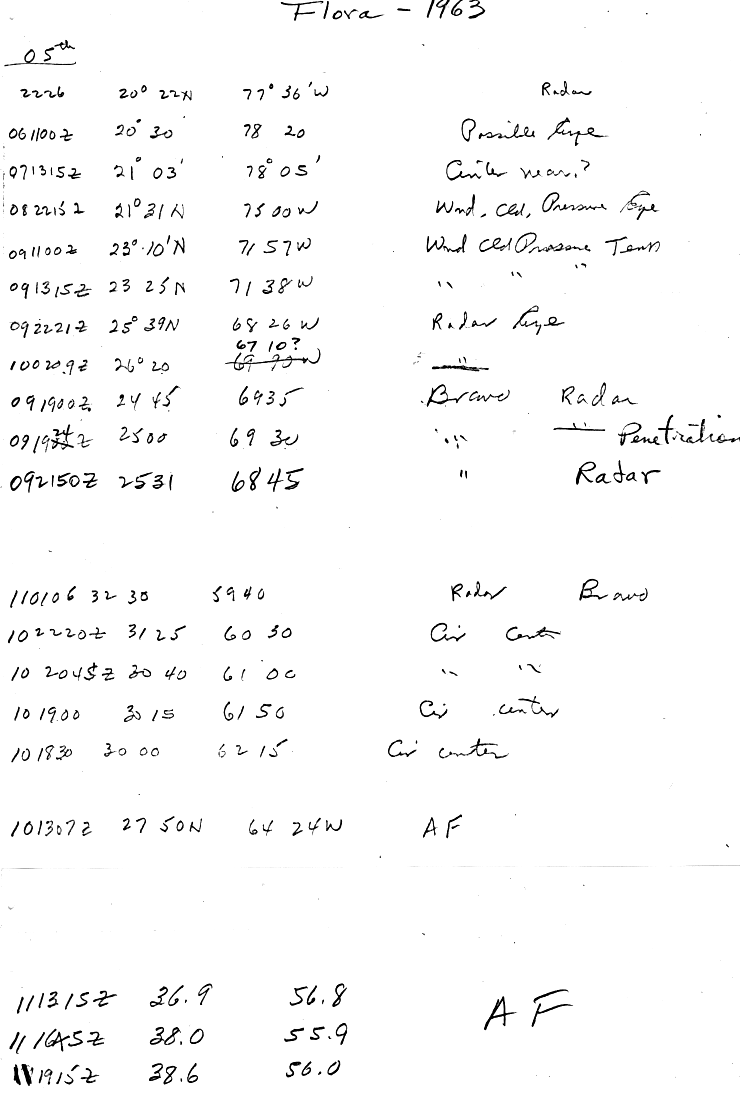 Flora - 1963
05th
2226 20° 22N 77° 36'W Radar
061100Z 20° 30 78 20 Possible Eye
071315Z 21° 03' 78° 05' Center near.?
082215Z 21° 31N 7500W Wnd, Cld, Pressure Eye
091100Z 23° 10'N 71 57W Wnd Cld Pressure Temp
091315Z 23 25N 71 38W " " "
092221Z 25° 39N 68 26W Radar Eye
67 10?
100209Z 26° 20 "
091900Z 24 45 6935 Bravo Radar
Z 2500 69 30 " " Penetration
092150Z 2531 6845 " Radar
110106 32 30 5940 Radar Bravo
102220Z 31 25 60 30 Cir Cent
10 2045Z 30 40 61 00 " "
101900 30 15 61 50 Cir center
101830 30 00 62 15 Cir center
101307Z 27 50N 64 24W AF
111315Z 36.9 56.8 AF
111645Z 38.0 55.9
111915Z 38.6 56.0